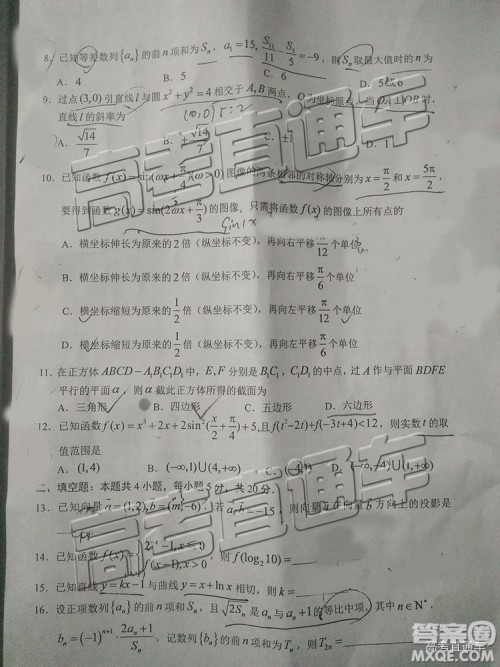 8. 已知等差数列{aₙ}的前n项和为Sₙ, a₁=15, S₁₁/11 - S₅/5 = -9, 则Sₙ取最大值时的n为
A. 4 B. 5 C. 6 D.
9. 过点(3,0)引直线l与圆x²+y²=4相交于A,B两点, O为坐标原点, 当 时,
直线l的斜率为
A. √14/7 B. ±√14/7 C. ±
10. 已知函数f(x)=sin(ωx+π/4)(ω>0)图像的两条相邻的对称轴分别为x=π/2和x=5π/2,
要得到函数g(x)=sin(2ωx+π/3)的图像, 只需将函数f(x)的图像上所有点的
A. 横坐标伸长为原来的2倍(纵坐标不变), 再向右平移π/12个单位
B. 横坐标伸长为原来的2倍(纵坐标不变), 再向右平移π/6个单位
C. 横坐标缩短为原来的1/2倍(纵坐标不变), 再向左平移π/12个单位
D. 横坐标缩短为原来的1/2倍(纵坐标不变), 再向左平移π/6个单位
11. 在正方体ABCD-A₁B₁C₁D₁中, E,F分别是B₁C₁, C₁D₁的中点, 过A作与平面BDFE
平行的平面α, 则α截此正方体所得的截面为
A. 三角形 B. 四边形 C. 五边形 D. 六边形
12. 已知函数f(x)=x³+2x+2sin²(x/2+π/4)+5, 且f(t²-2t)+f(-3t+4)<12, 则实数t的取
值范围是
A. (1,4) B. (-∞,1)∪(4,+∞) C. (-4,1) D. (-∞,-4)∪(1,+∞)
二、填空题: 本题共4小题, 每小题5分, 共20分.
13. 已知向量a=(1,2), b=(m,-6), 若a·b=-15, 则向量a在向量b方向上的投影是
14. 已知函数f(x)= , 则f(log₂10)=
15. 已知直线y=kx-1与曲线y=x+lnx相切, 则k=
16. 设正项数列{aₙ}的前n项和为Sₙ, 且√2Sₙ是aₙ与aₙ+1的等比中项, 其中n∈N*.
bₙ=(-1)ⁿ⁺¹·(2aₙ+1)/Sₙ, 记数列{bₙ}的前n项和为Tₙ, 则T₂ₙ=
高考直通车
高考直通车
高考直通车
答案圈
MXQE.COM